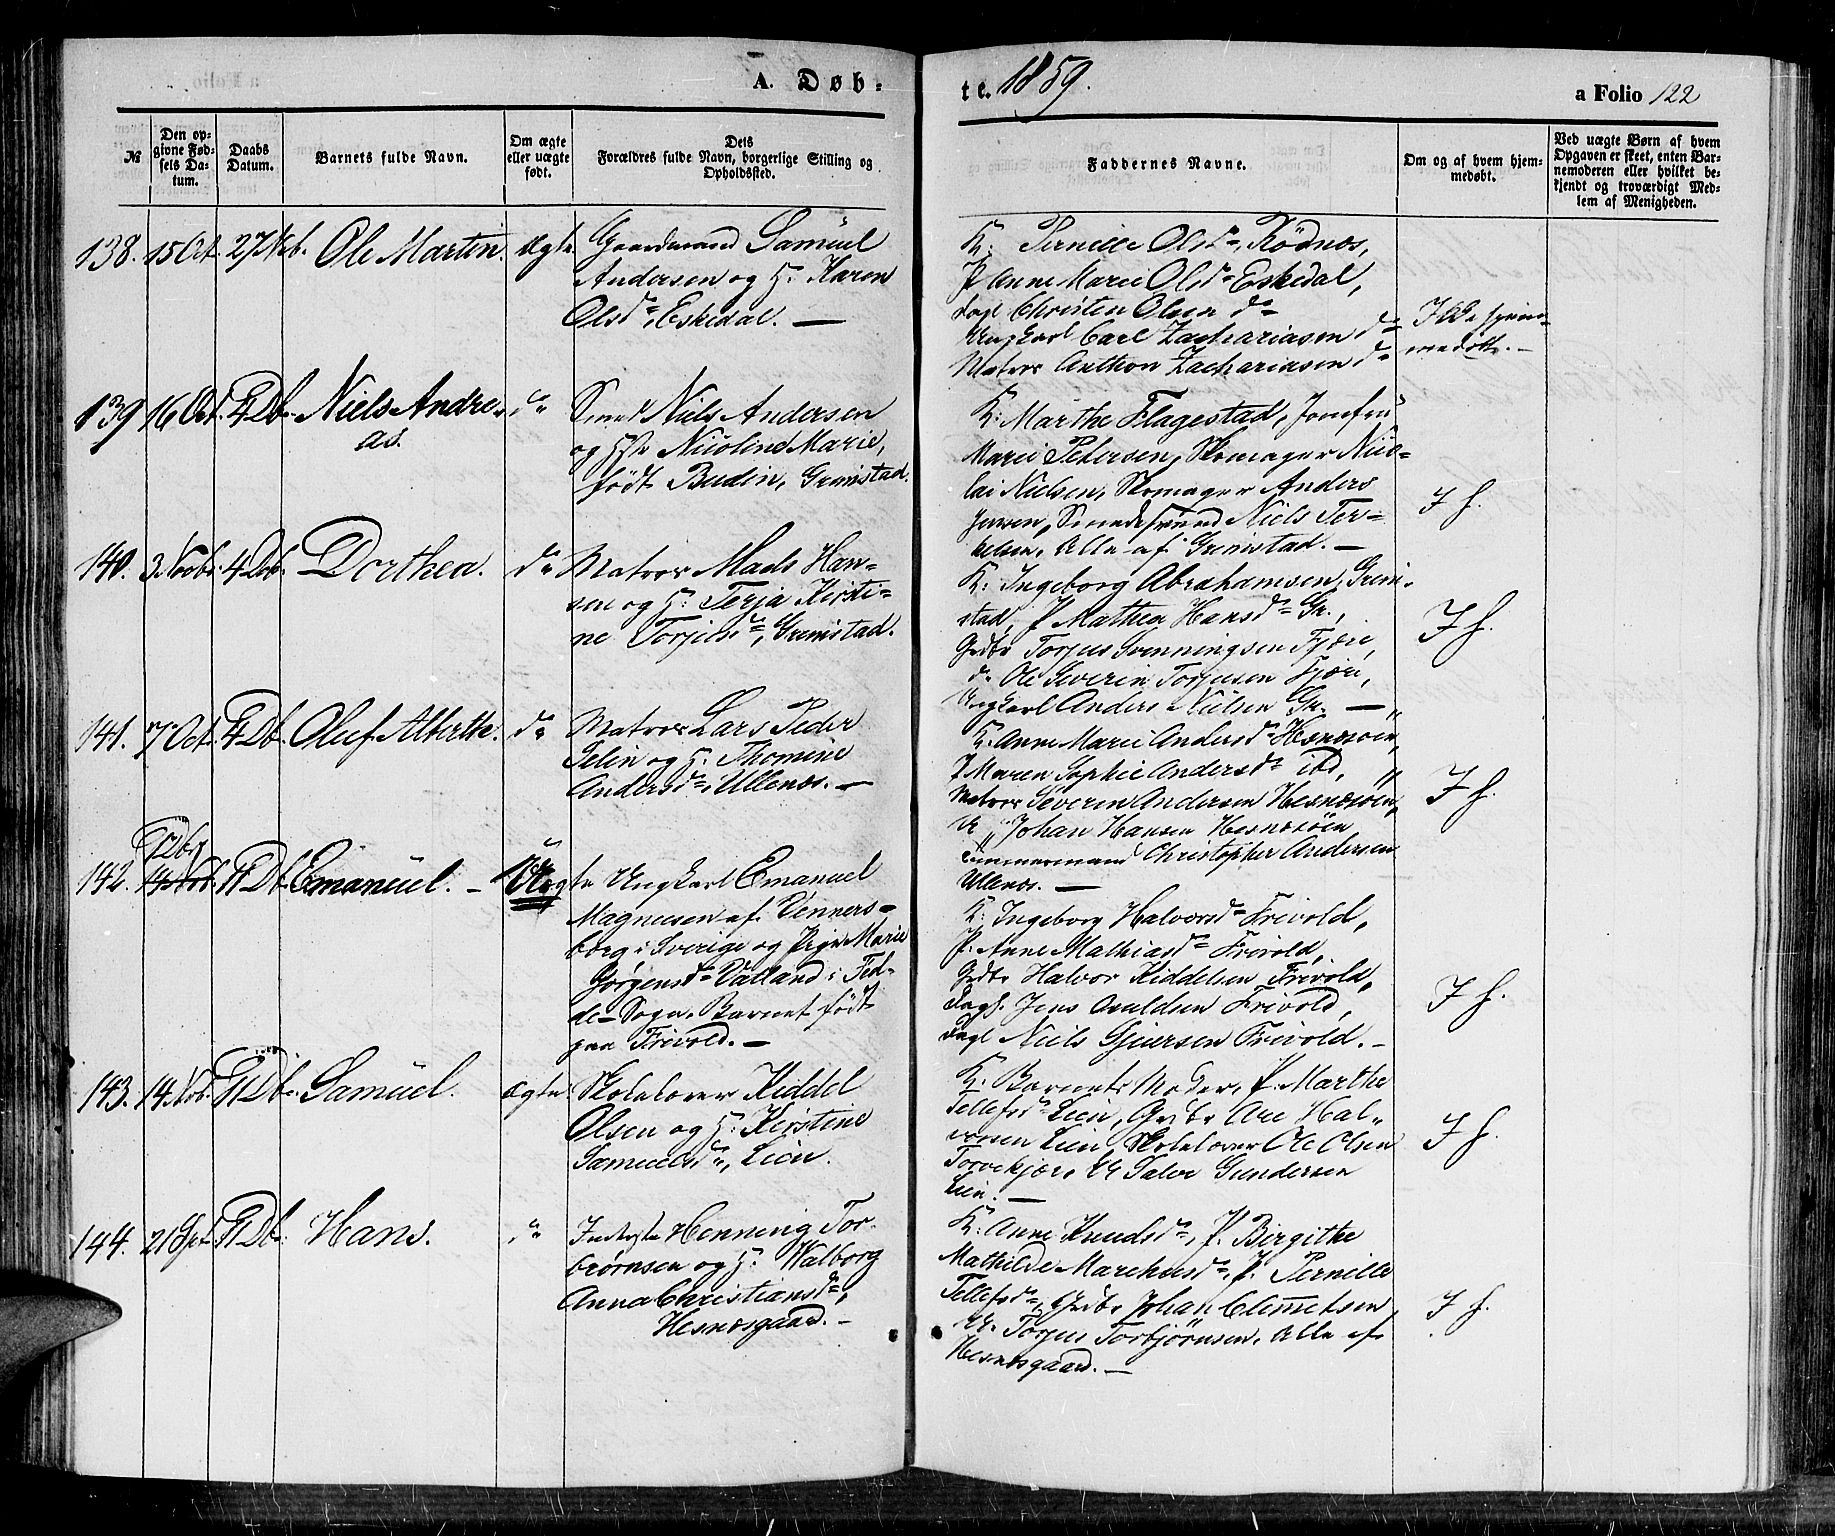 A. Døb-
te. 1859.
a Folio 122
№
Den op-
givne Fød-
sels Da-
tum.
Daabs
Datum.
Barnets fulde Navn.
Om ægte
eller uægte
født.
Dets
Forældres fulde Navn, borgerlige Stilling og
Opholdssted.
Faddernes Navne.
Om og af hvem hjem-
medøbt.
Ved uægte Børn af hvem
Opgaven er skeet, enten Bar-
nemoderen eller hvilket be-
kjendt og troværdigt Med-
lem af Menigheden.
138. 15 Oct. 27 Nvb. Ole Martin. ægte
Gaardmand Samuel
Andersen og H. Karen
Olsd., Eskedal. —
K: Pernille Olsd., Rödnes,
P Anne Marie Olsd Eskedal,
Fagl Christen Olsen do
Ungkarl Carl Zachariasen do
Matros Anthon Zachariasen do
139 16 Oct. 4 Db. Niels Andre-
as. do
Smed Niels Andersen
og Hst Nicoline Marie,
født Budin, Grimstad.
K: Marthe Flagestad, Jomfru
Marie Petersen, Skomager Nico-
lai Nielsen, Skomager Anders
Jensen, Smedesvend Niels Ter-
kelsen. Alle af Grimstad. —
J H.
140. 3 Novbr. 4 Db. Dorthea. do
Matros Mads Han-
sen og H: Terja Kirsti-
ne Torjusd., Grimstad.
K: Ingeborg Abrahamsen, Grim-
stad, P Mathea Hansd Gr.,
Grdbr Torjus Svenningsen Fjære,
do Ole Severin Torjusen Fjære,
Ungkarl Anders Nielsen Gr. —
J H.
141. 7 Oct. 4 Db. Oluf Alberth. do
Matros Lars Peder
Felin og H: Thomine
Andersd., Ullenes. —
K: Anne Marie Andersd Hesnesöen,
P Maren Sophie Andersd ibd,
Matros Severin Andersen Hesnesöen,
U „ Johan Hansen Hesnesöen
Tömmermand Christopher Andersen
Ullenes. —
J H.
142. 14 Nvb. 11 Db. Emanuel. — Uægte
Ungkarl Emanuel
Magnusen af Venners-
borg i Sverige og Pige Marie
Jørgensd Vatland i Fed-
de Sogn. Barnet født
paa Frivold. —
K: Ingeborg Halvorsd Frivold,
P. Anne Mathiasd Frivold,
Grdbr Halvor Kiddelsen Frivold,
Fagl. Jens Osuldsen Frivold,
Fagl Niels Gjeruldsen Frivold. —
J H.
143. 14 Nvb. 11 Db. Samuel. ægte
Skolelærer Kiddel
Olsen og H: Kirstine
Samuelsd., Lien.
K: Barnets Moder, P. Marthe
Tellefsd Lien, Grdbr Ove Hal-
vorsen Lien, Skolelærer Ole Olsen
Torvekjær, U Salve Gundersen
Lien. —
J H.
144. 21 Sept 11 Db. Hans. do
Inderste Henning Tor-
bjørnsen og H: Walborg
Anna Christiansd.,
Hesnesgaard. —
K: Anne Knudsd., P. Birgithe
Mathilde Marcusd., P. Pernille
Tellefsd., Grdbr Johan Clemetsen,
U. Torjus Torbjørnsen. Alle af
Hesnesgaard. —
J H.